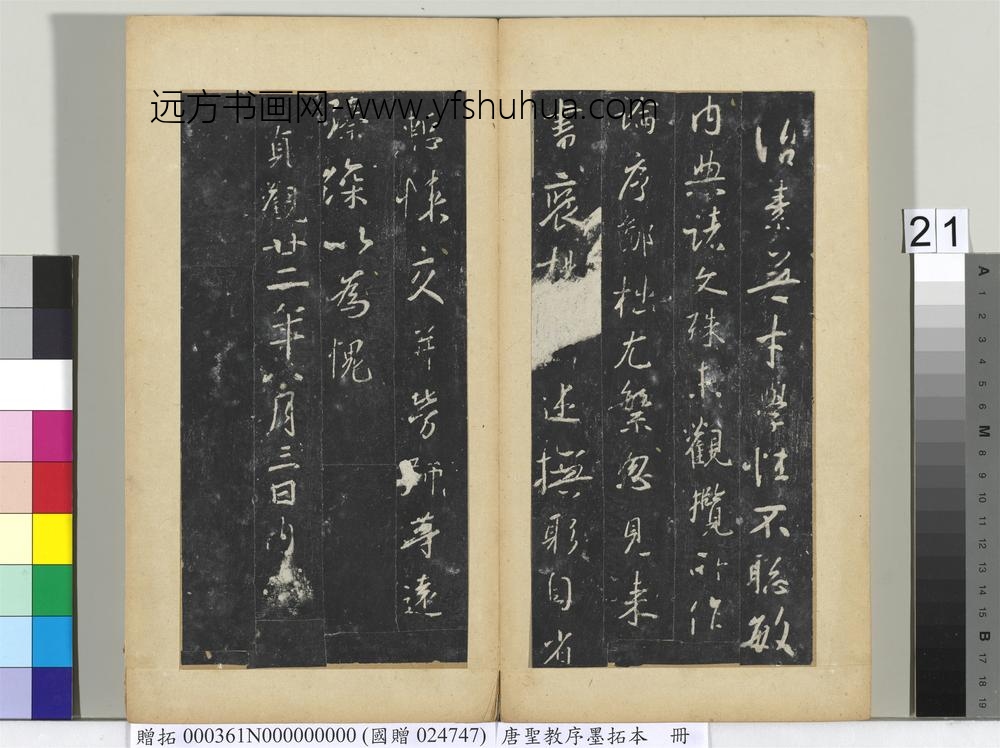 远方书画网-www.yfshuhua.com
治素無才學性不聰敏
內典諸文殊未觀攬所作
論序鄙拙尤繁忽見来
書襃揚述撫躬自省
慙悚交并勞師等遠
臻深以為愧
貞觀廿二年八月三日內
21
A 1 2 3 4 5 6 M 8 9 10 11 12 13 14 15 B 17 18 19
贈拓 000361N000000000 (國贈 024747) 唐聖教序墨拓本 冊